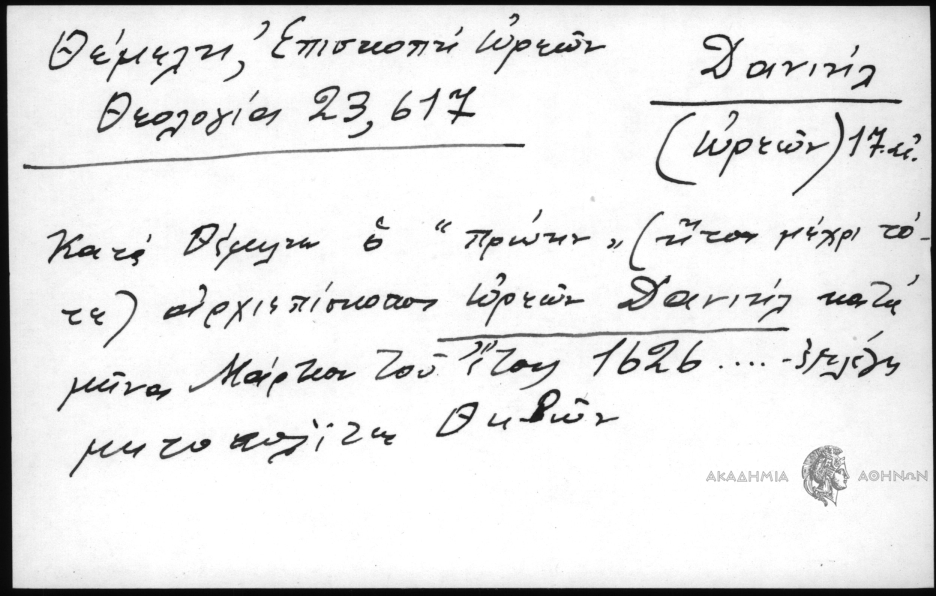 Θέμελη, Ἐπισκοπή Ὠρεῶν
Θεολογία 23, 617
Δανιήλ
(Ὠρεῶν) 17 αἰ.
Κατά Θέμελην ὁ "πρώην" (ἤτοι μέχρι τό-
τε) ἀρχιεπίσκοπος Ὠρεῶν Δανιήλ κατά
μῆνα Μάρτιον τοῦ ἔτους 1626 .... ἐξελέγη
μητροπολίτης Θηβῶν
ΑΚΑΔΗΜΙΑ ΑΘΗΝΩΝ